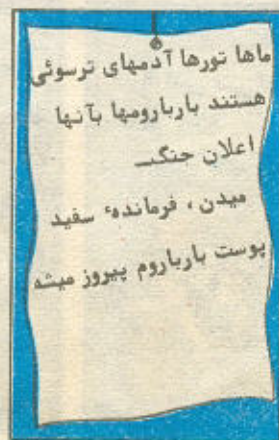 ماها تورها آدمهای ترسوئی
هستند باربارومها بآنها
اعلان جنگ
میدن ، فرماندهٔ سفید
پوست بارباروم پیروز میشه